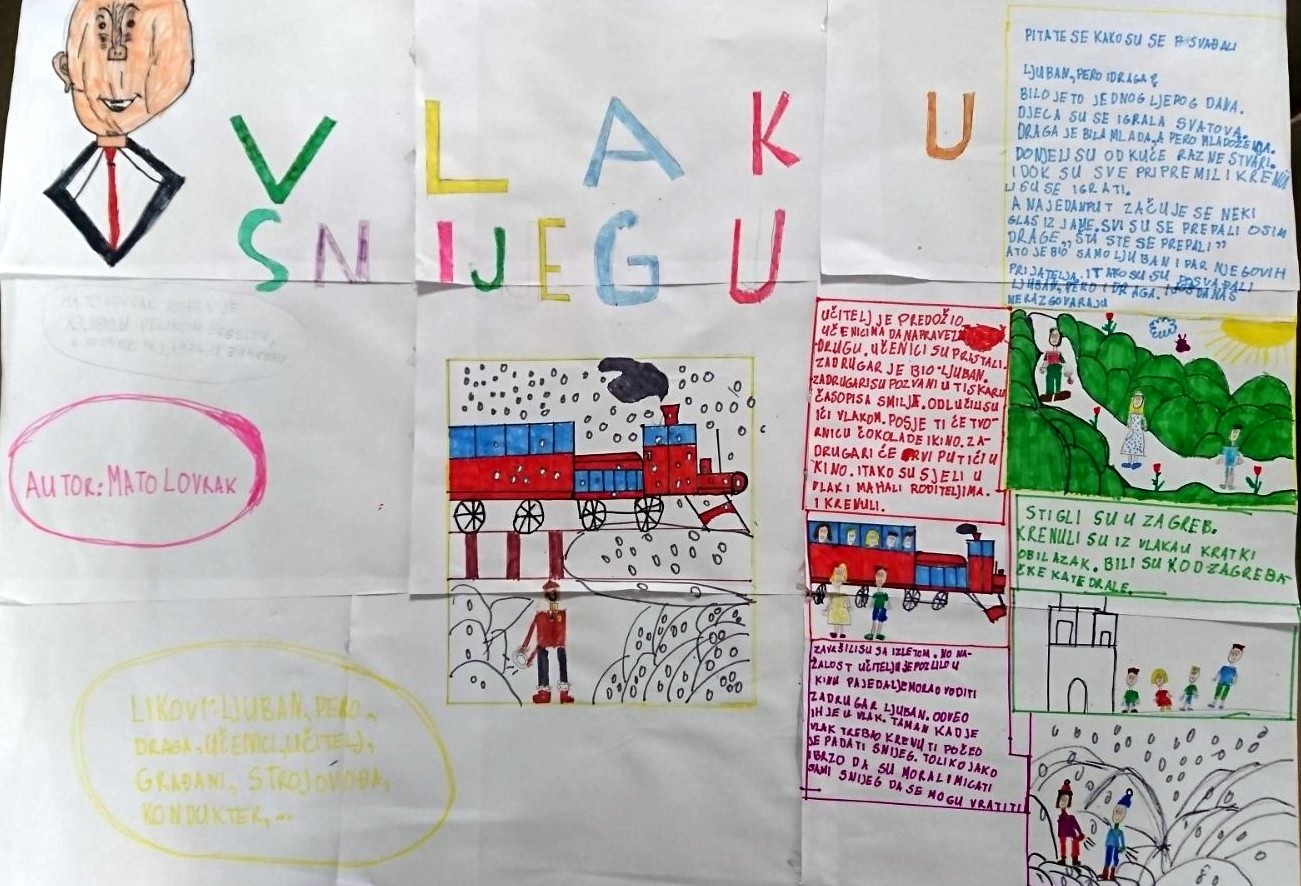 VLAK U
SNIJEGU
MATO LOVRAK
AUTOR: MATO LOVRAK
LIKOVI: LJUBAN, PERO,
DRAGA, UČENICI, UČITELJ,
GRAĐANI, STROJOVOĐA,
KONDUKTER,...
UČITELJ JE PREDOŽIO
UČENICIMA DA NAPRAVE Z
DRUGU. UČENICI SU PRISTALI.
ZADRUGAR JE BIO LJUBAN.
ZADRUGARI SU POZVANI U TISKARU
ČASOPISA SMILJE. ODLUČILI SU
IĆI VLAKOM. POSJE TI ĆE TVO-
RNICU ČOKOLADE I KINO. ZA-
DRUGARI ĆE PRVI PUT IĆI U
KINO. I TAKO SU SJELI U
VLAK I MAHALI RODITELJIMA.
I KRENULI.
ZAVRŠILI SU SA IZLETOM. NO NA-
ŽALOST UČITELJU JE POZLILO U
KINU PA JE DALJE MORAO VODITI
ZADRUGAR LJUBAN. ODVEO
IH JE U VLAK. TAMAN KAD JE
VLAK TREBAO KRENUTI POČEO
JE PADATI SNIJEG. TOLIKO JAKO
I BRZO DA SU MORALI MICATI
SAMI SNIJEG DA SE MOGU VRATITI
PITATE SE KAKO SU SE POSVAĐALI
LJUBAN, PERO I DRAGA?
BILO JE TO JEDNOG LJEPOG DANA.
DJECA SU SE IGRALA SVATOVA.
DRAGA JE BILA MLADA, A PERO MLADOŽENJA.
DONJELI SU OD KUĆE RAZNE STVARI.
I DOK SU SVE PRIPREMILI KRENU
LI SU SE IGRATI.
A NAJEDANPUT ZAČUJE SE NEKI
GLAS IZ JAME. SVI SU SE PREPALI OSIM
DRAGE. „ŠTA STE SE PREPALI”
A TO JE BIO SAMO LJUBAN I PAR NJEGOVIH
PRIJATELJA. I TAKO SU SU POSVAĐALI
LJUBAN, PERO I DRAGA. I DANAS
NERAZGOVARAJU
STIGLI SU U ZAGREB.
KRENULI SU IZ VLAKA U KRATKI
OBILAZAK. BILI SU KOD ZAGREBA-
ČKE KATEDRALE.